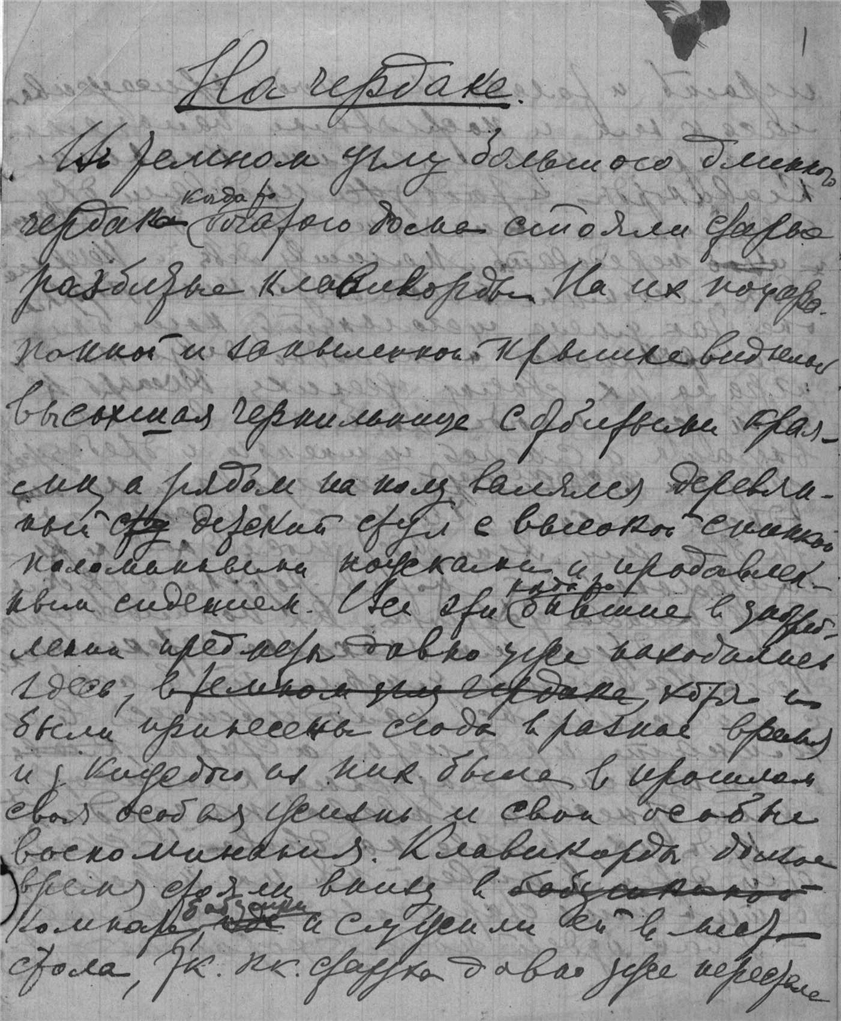 1
На чердаке.
В темном углу большого длинного
когда то
чердака богатого дома стояли старые
разбитые клавикорды. На их поцара-
панной и запыленной крышке виднелась
высохшая чернильница с отбитыми края-
ми, а рядом на полу валялся деревян-
ный детский стул с высокой спинкой
поломанными и продавлен-
когда то
ным сидением. Все эти бывшие в употреб-
лении предметы давно уже находились
здесь, в темном углу чердака, хотя и
были принесены сюда в разное время
и у каждого из них была в прошлом
своя особая жизнь и свои особые
воспоминания. Клавикорды долгое
время стояли внизу в бабушкиной
бабушки
комнате, и служили ей в место
стола, т.к. старуха давно уже перестала